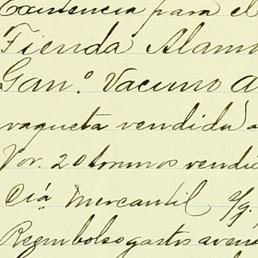 Existencia para el
Tienda Alam
Gan.º Vacuno A
vaqueta vendida a
Por. 20 tornos vendi
Cía Mercantil a/g.
Reembolso gastos aven